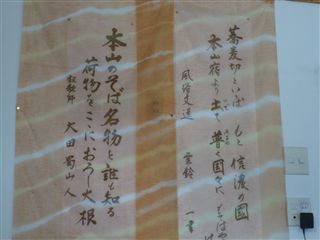 蕎麦切といつぱ もと信濃の國
本山宿より出て 普く国々に
風俗文選 雲鈴
本山のそば名物と誰も知る
荷物をここにおろし大根
狂歌師 大田蜀山人